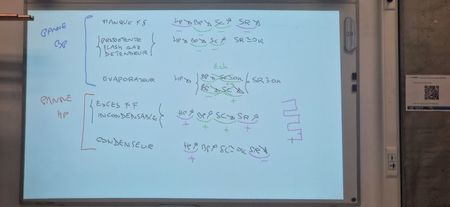 PANNE BP
MANQUE F.F. HP↘ BP↘ SC↗ SR↘
PREDETENTE HP↘ BP↘ SC↗ SR≃OK
FLASH GAZ
DETENDEUR
ΔtH
EVAPORATEUR HP↘ BP↘ SC≃OK SR≃OK
BP↘ SC↘
+
PANNE HP
EXCES F.F HP↗ BP↗ SC↘ SR↗
INCONDENSABLE + + + +
CONDENSEUR HP↗ BP↗ SC≃OK SR↘
+ -